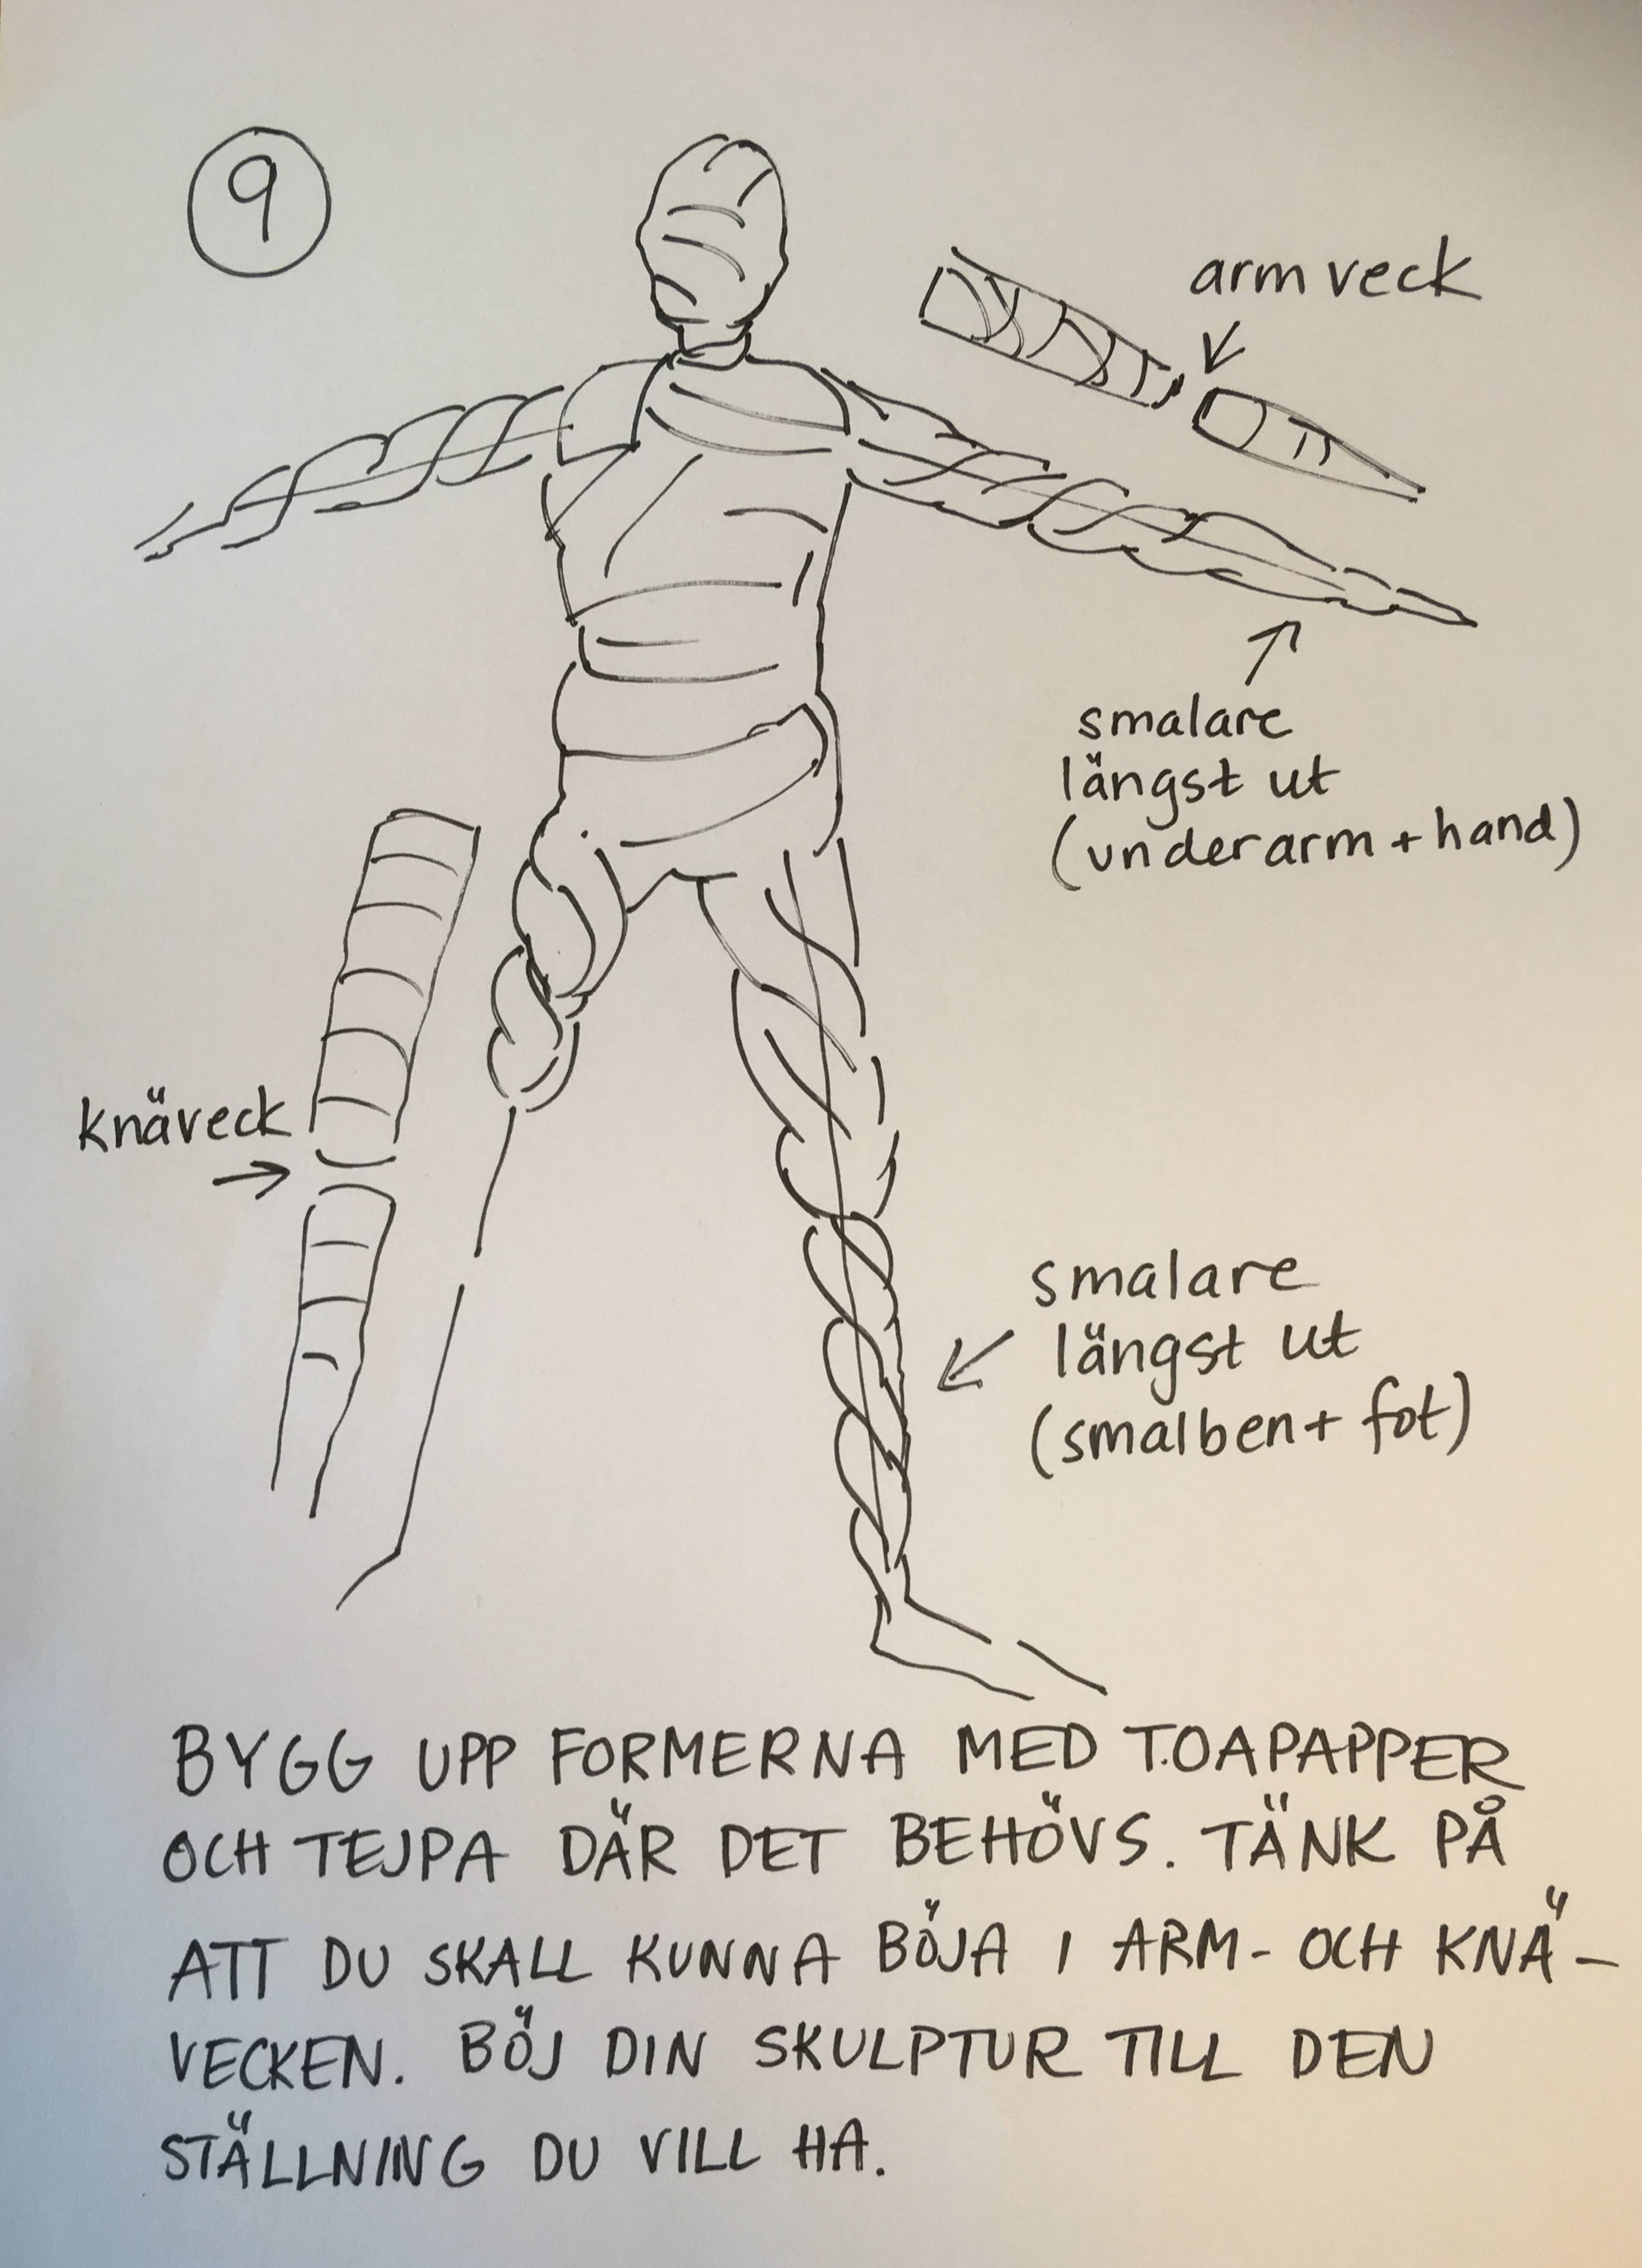 9
arm veck
smalare
längst ut
(underarm + hand)
knäveck
smalare
längst ut
(smalben + fot)
BYGG UPP FORMERNA MED TOAPAPPER
OCH TEJPA DÄR DET BEHÖVS. TÄNK PÅ
ATT DU SKALL KUNNA BÖJA I ARM- OCH KNÄ-
VECKEN. BÖJ DIN SKULPTUR TILL DEN
STÄLLNING DU VILL HA.